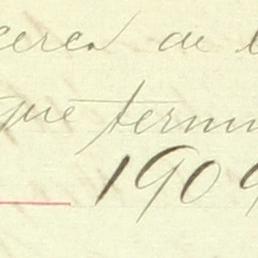 acerca de l
que termin
1909